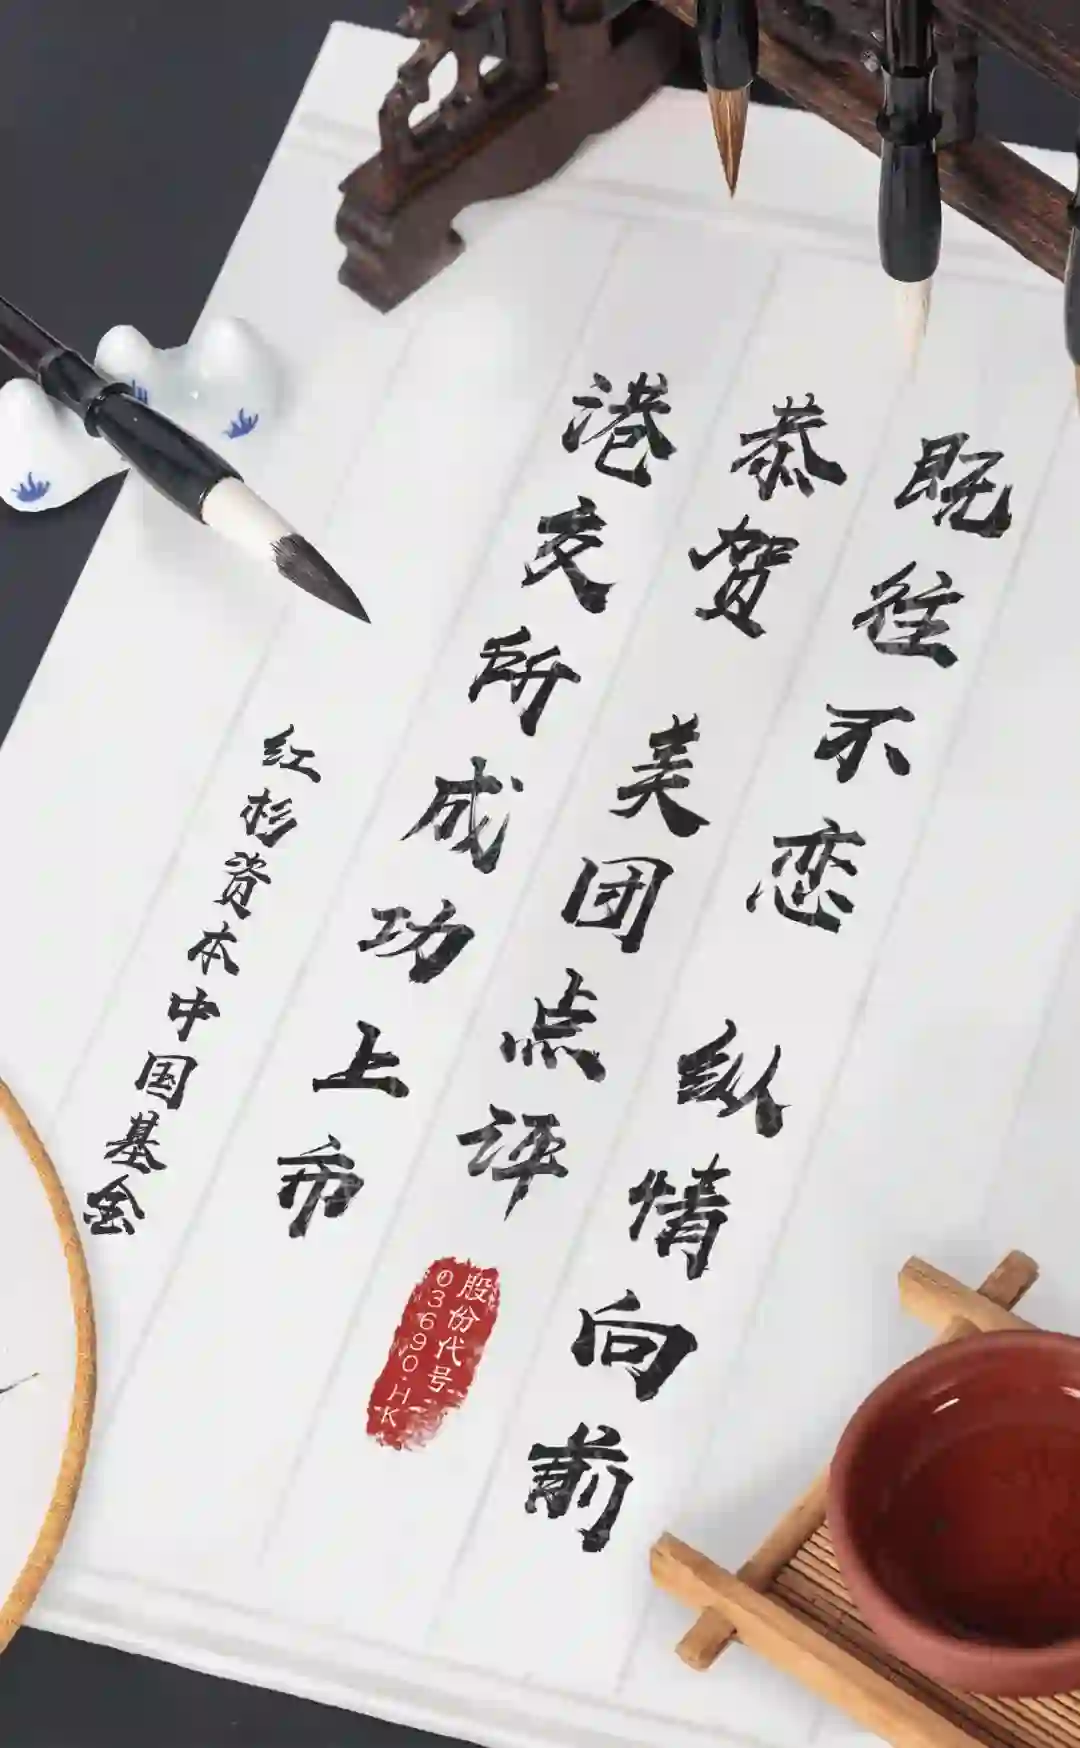 既往不恋 纵情向前
恭贺 美团点评
港交所成功上市
红杉资本中国基金
股份代号
03690.HK